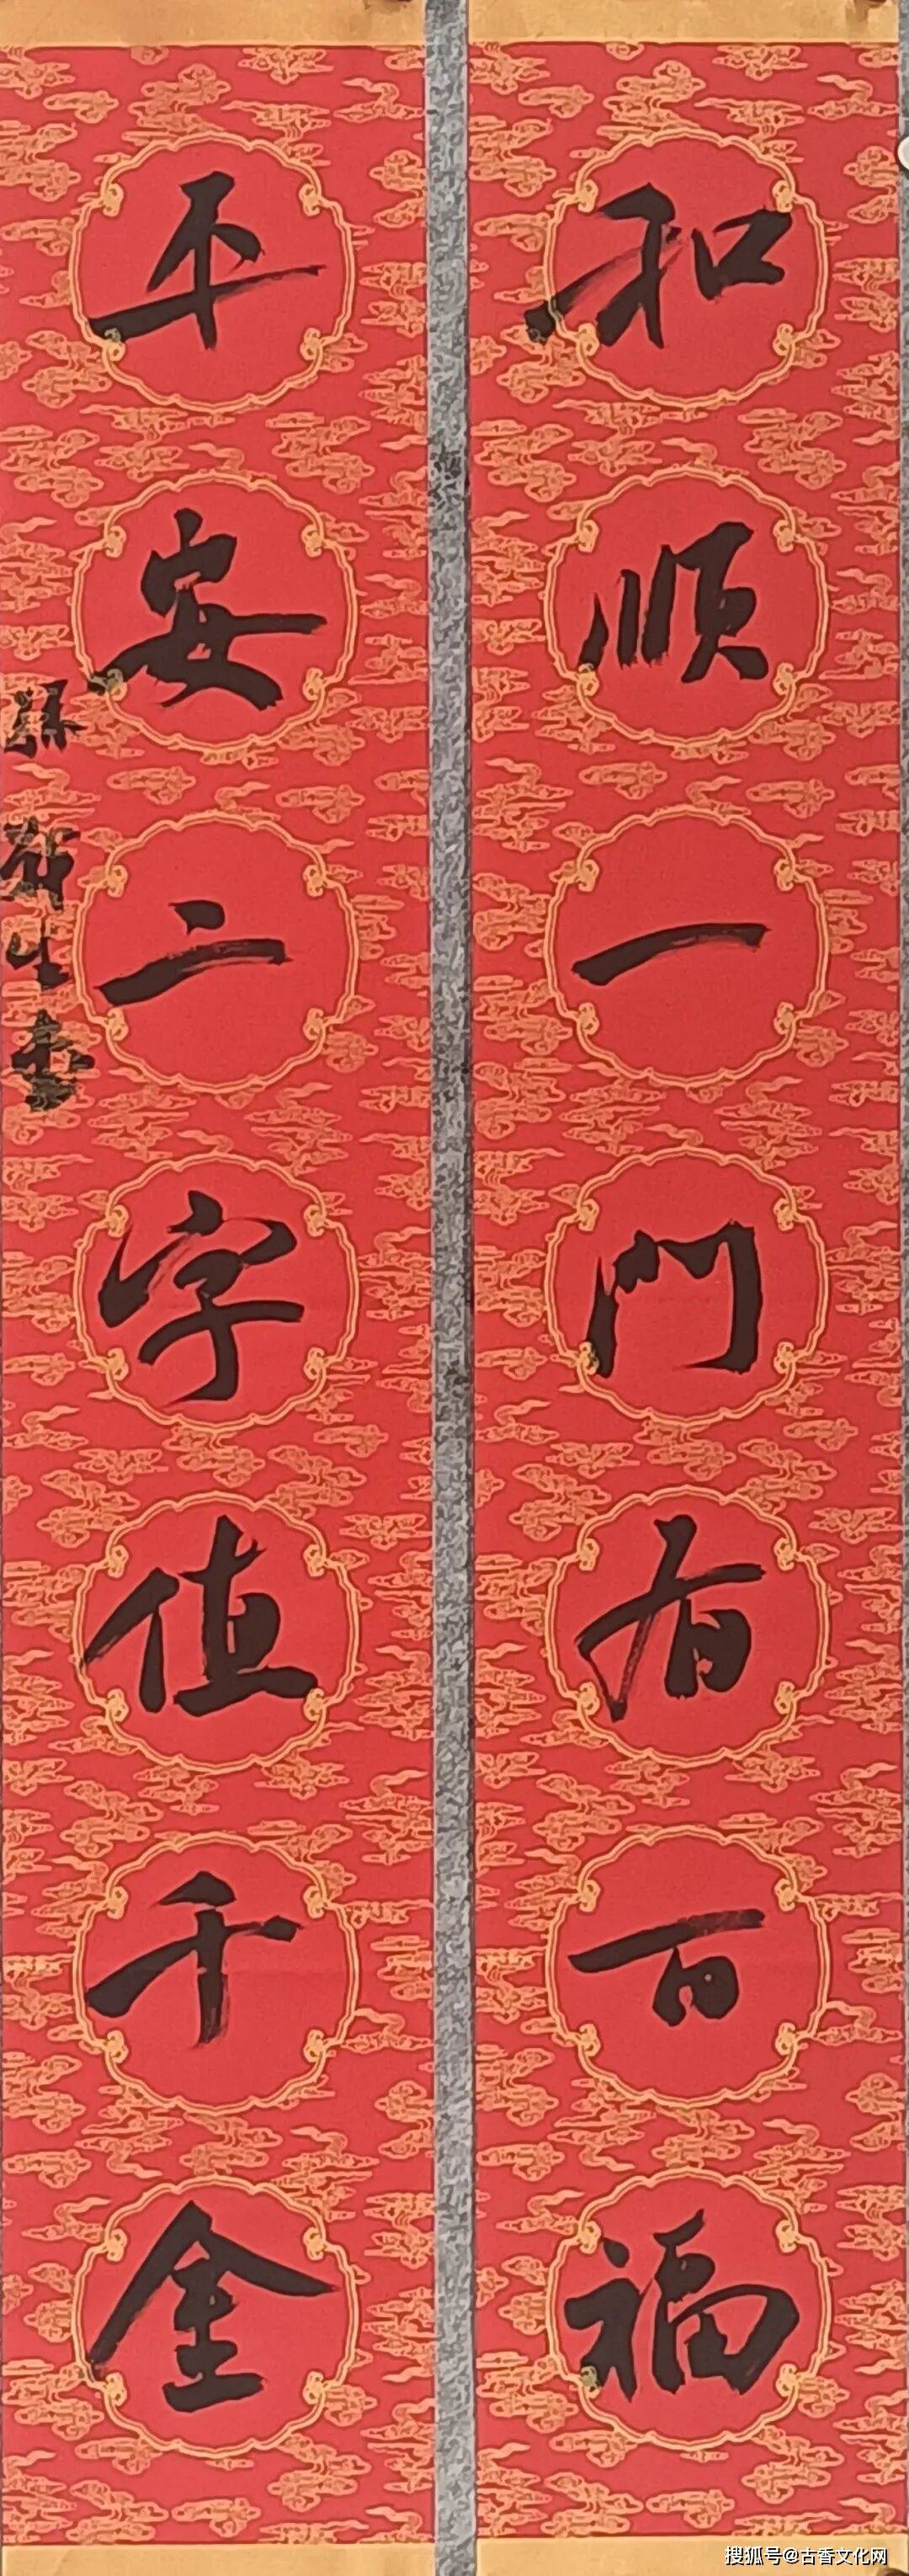 和順一門有百福
平安二字值千金
搜狐号@古香文化网